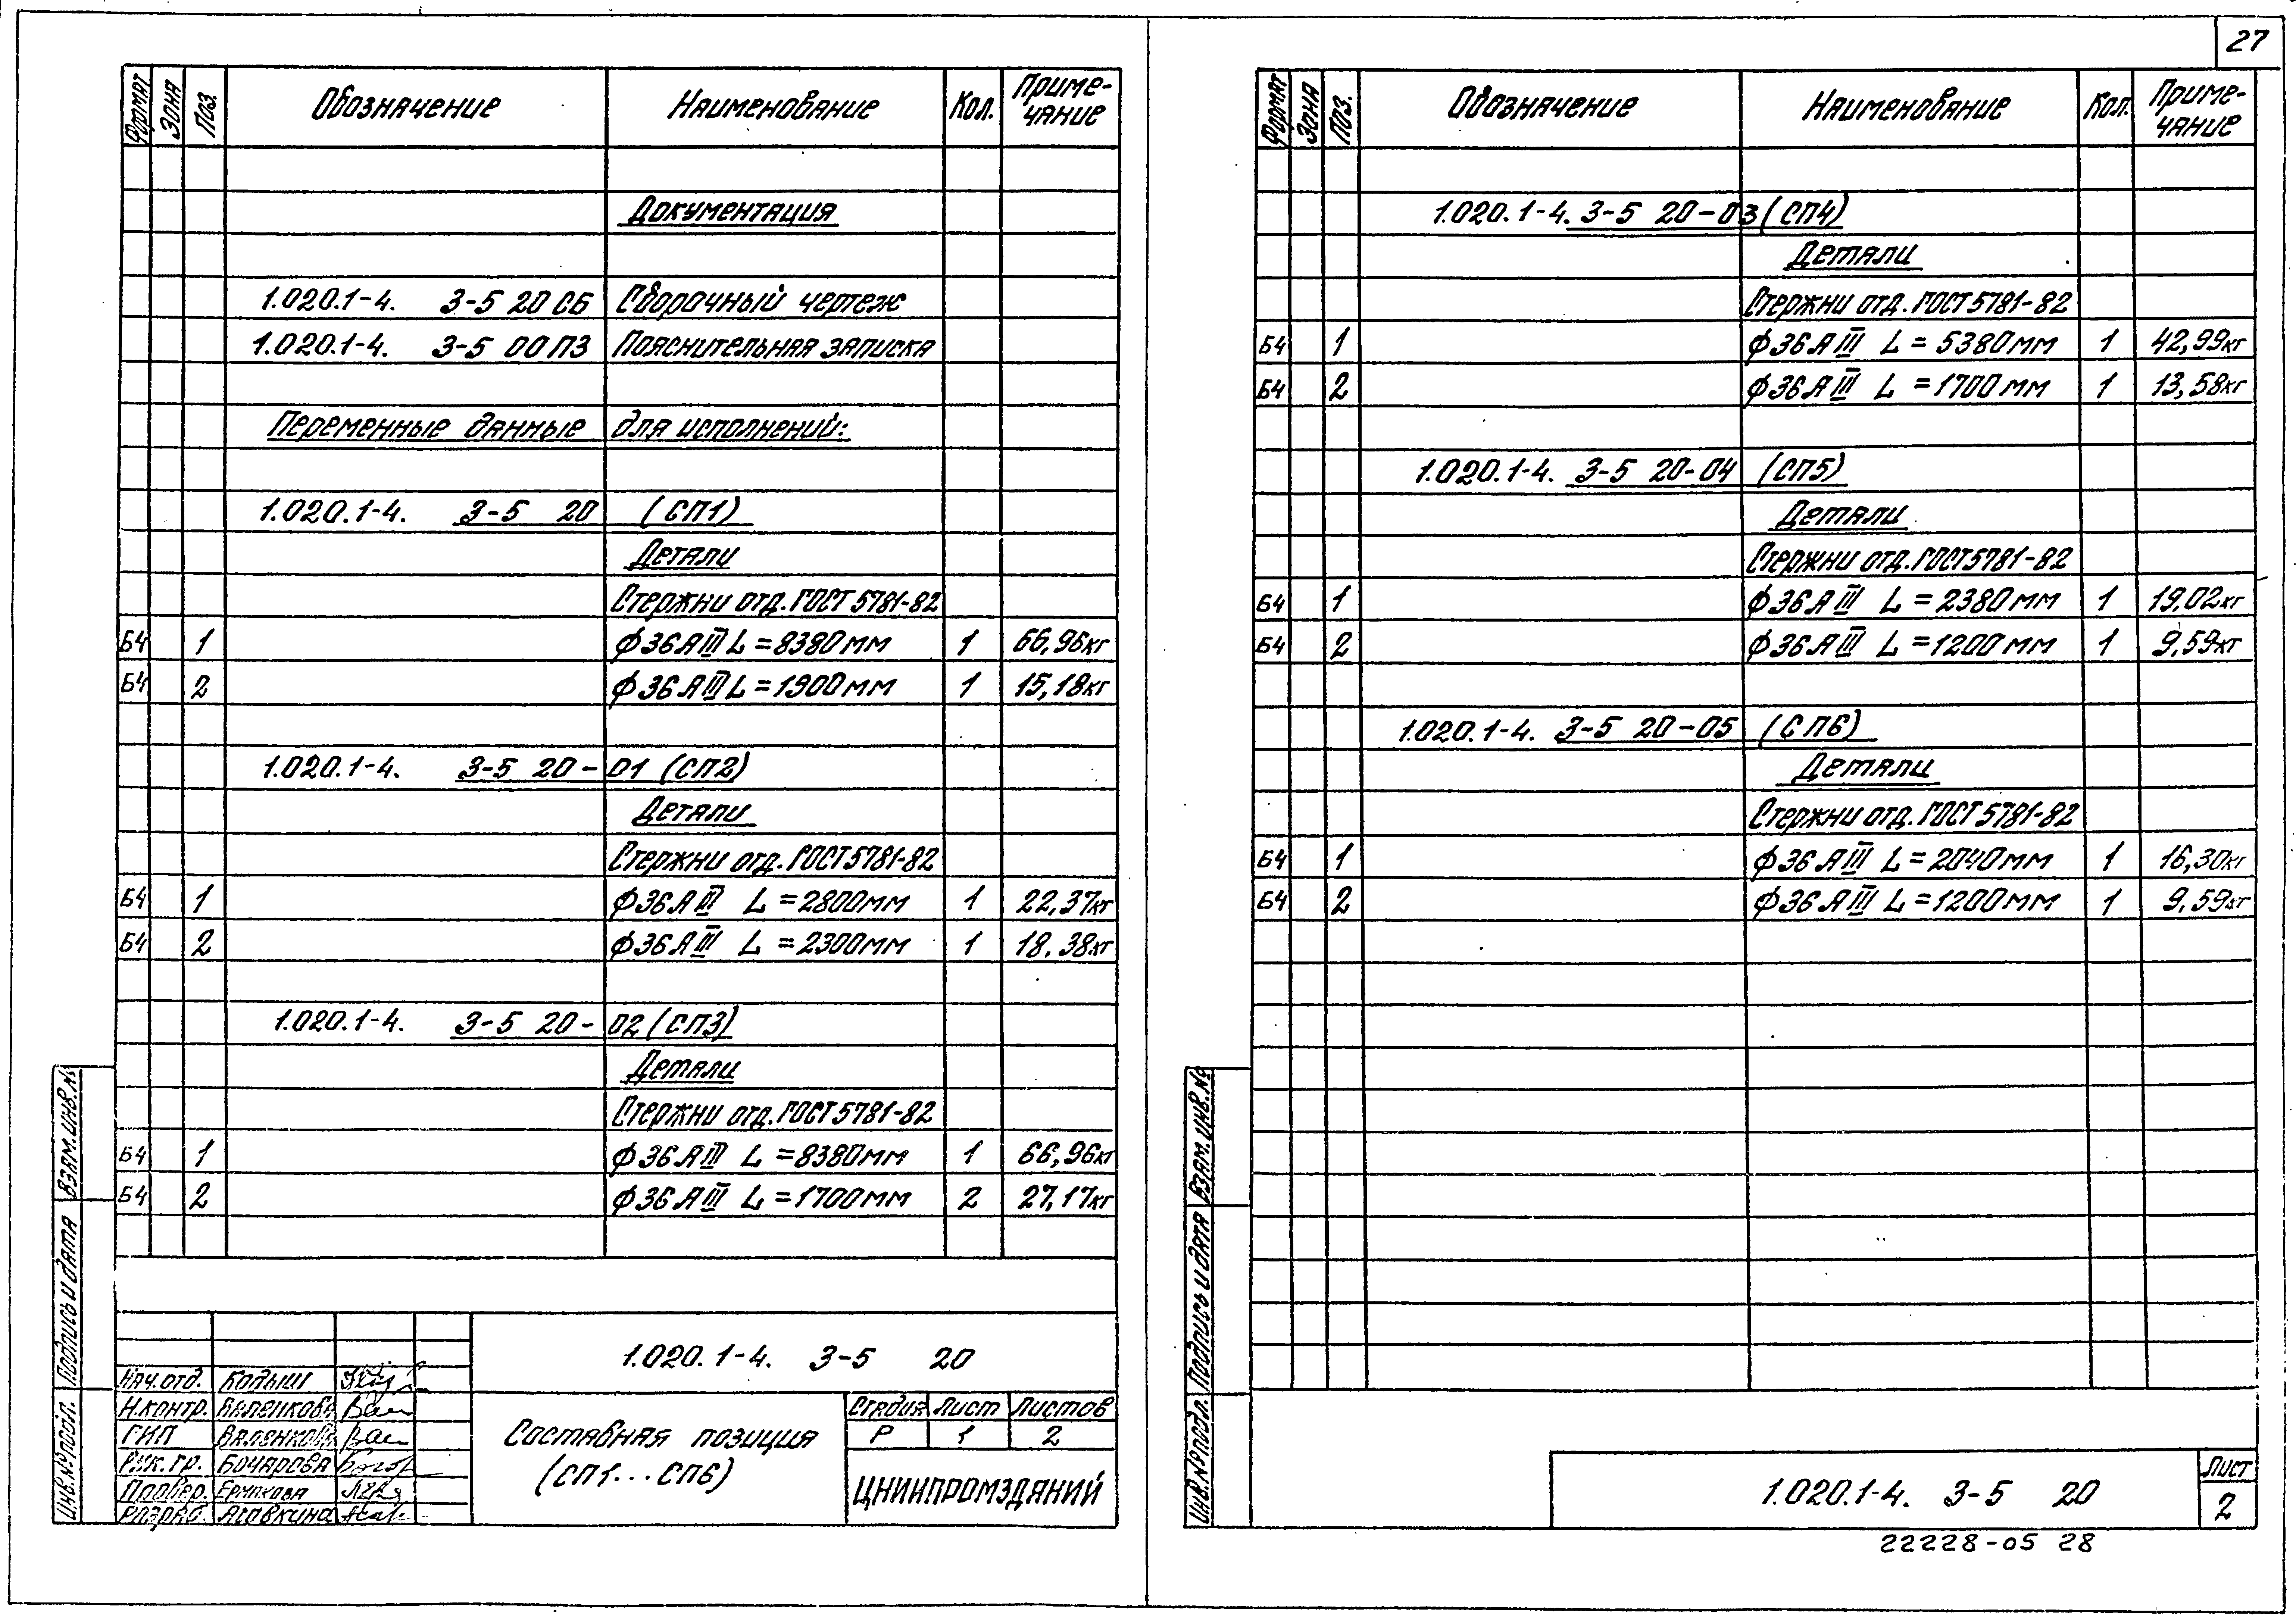 27
Формат Зона Поз. Обозначение Наименование Кол. Приме-
чание
Документация
1.020.1-4. 3-5 20 СБ Сборочный чертеж
1.020.1-4. 3-5 00ПЗ Пояснительная записка
Переменные данные для исполнений:
1.020.1-4. 3-5 20 (СП1)
Детали
Стержни отд. ГОСТ 5781-82
Б4 1 ф36АIII L=8380мм 1 66,96кг
Б4 2 ф36АIII L=1900мм 1 15,18кг
1.020.1-4. 3-5 20-01 (СП2)
Детали
Стержни отд. ГОСТ 5781-82
Б4 1 ф36АIII L=2800мм 1 22,37кг
Б4 2 ф36АIII L=2300мм 1 18.38кг
1.020.1-4. 3-5 20-02 (СП3)
Детали
Стержни отд. ГОСТ 5781-82
Б4 1 ф36АIII L=8380мм 1 66,96кг
Б4 2 ф36АIII L=1700мм 2 27,17кг
1.020.1-4. 3-5 20
Нач.отд. Кодыш
Н.контр. Валенкова
ГИП Валенкова
Рук.гр. Бочарова
Провер. Ермакова
Разраб.
Составная позиция
(СП1...СП6)
Стадия Лист Листов
Р 1 2
ЦНИИПРОМЗДАНИЙ
Инв.№подл. Подпись и дата Взам.инв.№
Формат Зона Поз. Обозначение Наименование Кол. Приме-
чание
1.020.1-4. 3-5 20-03 (СП4)
Детали
Стержни отд. ГОСТ 5781-82
Б4 1 ф36АIII L=5380мм 1 42,99кг
Б4 2 ф36АIII L=1700мм 1 13,58кг
1.020.1-4. 3-5 20-04 (СП5)
Детали
Стержни отд. ГОСТ 5781-82
Б4 1 ф36АIII L=2380мм 1 19,02кг
Б4 2 ф36АIII L=1200мм 1 9,59кг
1.020.1-4. 3-5 20-05 (СП6)
Детали
Стержни отд. ГОСТ 5781-82
Б4 1 ф36АIII L=2040мм 1 16,30кг
Б4 2 ф36АIII L=1200мм 1 9,59кг
Инв.№подл. Подпись и дата Взам.инв.№
1.020.1-4. 3-5 20
Лист
2
22228-05 28